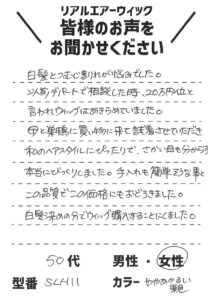 リアルエアーウィック
皆様のお声を
お聞かせください
白髪とつむじ割れが悩みでした。
以前デパートで相談した時、20万円位と
言われウィッグはあきらめていました。
母と巣鴨に買い物に来て試着させていただき
私のヘアスタイルにぴったりで、さかい目も分からず
本当にびっくりしました。手入れも簡単そうな事と
この品質でこの価格にもおどろきました。
白髪染めの分でウィッグ購入することにしました。
50代 男性・女性
型番 SLH11 カラー